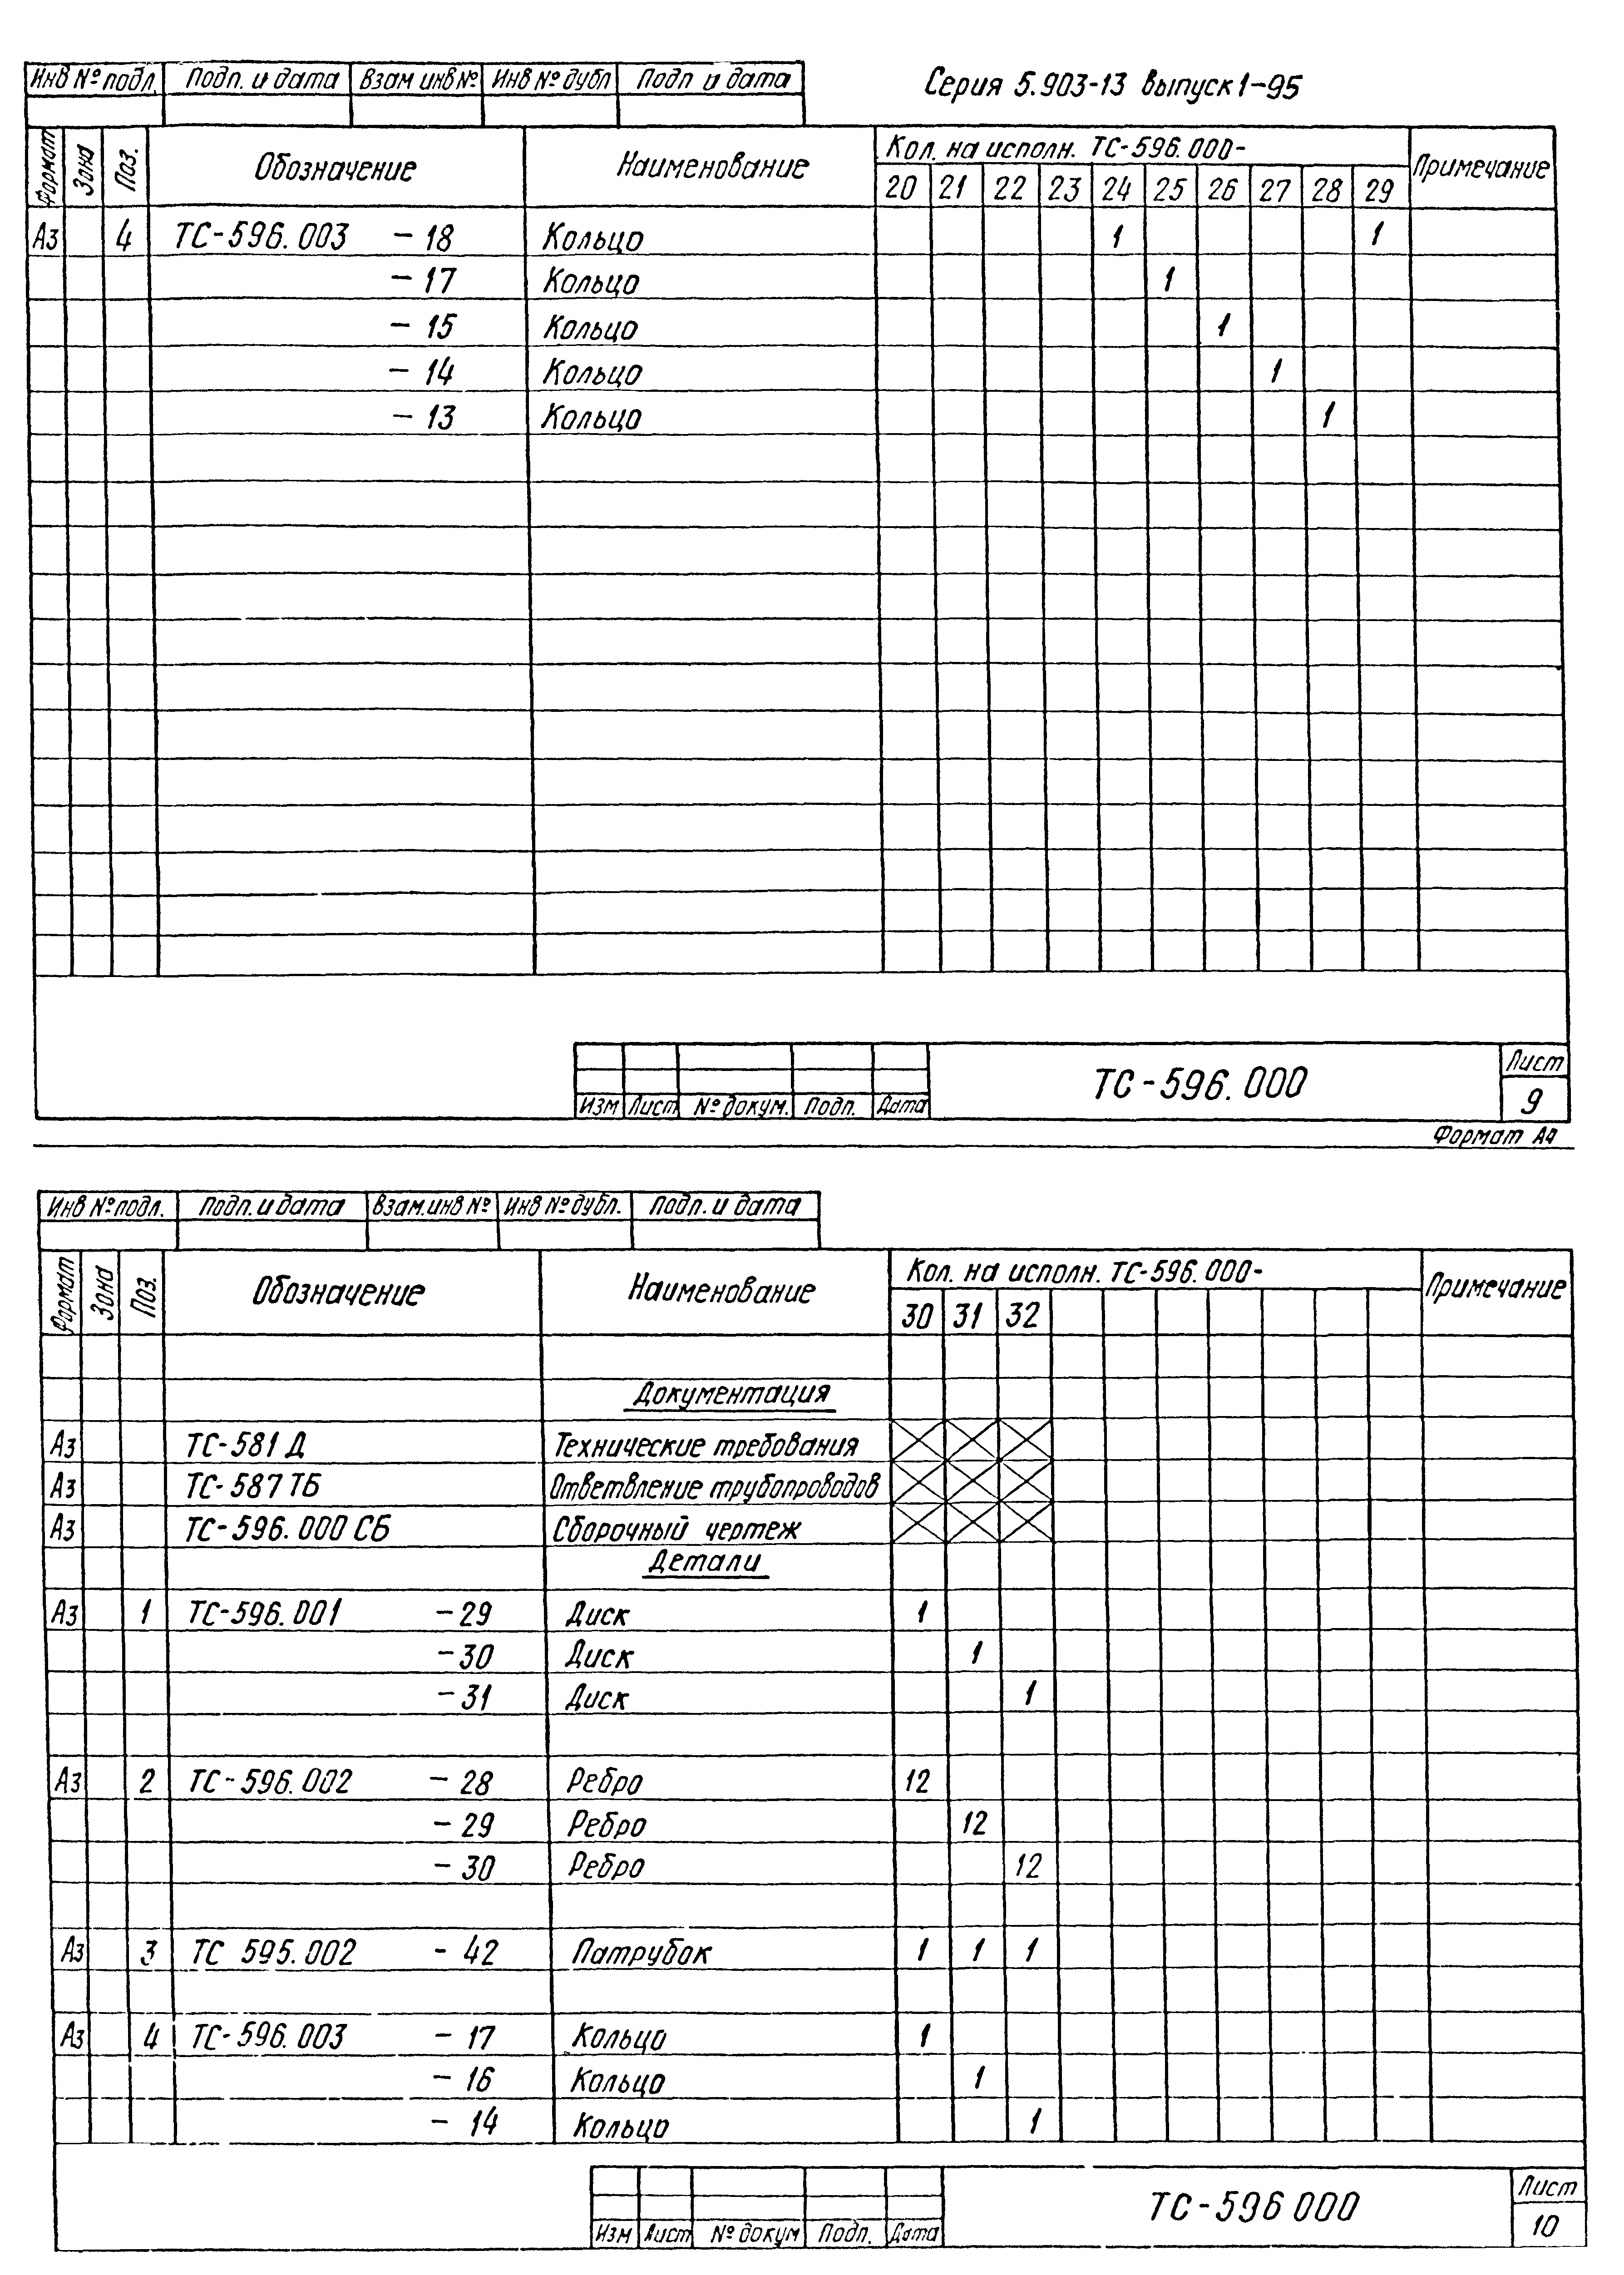 Серия 5.903-13 выпуск 1-95
Инв № подл. Подп. и дата Взам инв № Инв № дубл Подп и дата
Формат Зона Поз. Обозначение Наименование Кол. на исполн. ТС-596.000- Примечание
20 21 22 23 24 25 26 27 28 29
А3 4 ТС-596.003 -18 Кольцо 1 1
-17 Кольцо 1
-15 Кольцо 1
-14 Кольцо 1
-13 Кольцо 1
ТС-596.000 Лист
9
Изм Лист № докум. Подп. Дата
Формат А4
Инв № подл. Подп. и дата Взам. инв № Инв № дубл. Подп. и дата
Формат Зона Поз. Обозначение Наименование Кол. на исполн. ТС-596.000- Примечание
30 31 32
Документация
А3 ТС-581 Д Технические требования
А3 ТС-587 ТБ Ответвление трубопроводов
А3 ТС-596.000 СБ Сборочный чертеж
Детали
А3 1 ТС-596.001 -29 Диск 1
-30 Диск 1
-31 Диск 1
А3 2 ТС-596.002 -28 Ребро 12
-29 Ребро 12
-30 Ребро 12
А3 3 ТС 595.002 -42 Патрубок 1 1 1
А3 4 ТС-596.003 -17 Кольцо 1
-16 Кольцо 1
-14 Кольцо 1
ТС-596 000 Лист
10
Изм Лист № докум Подп. Дата